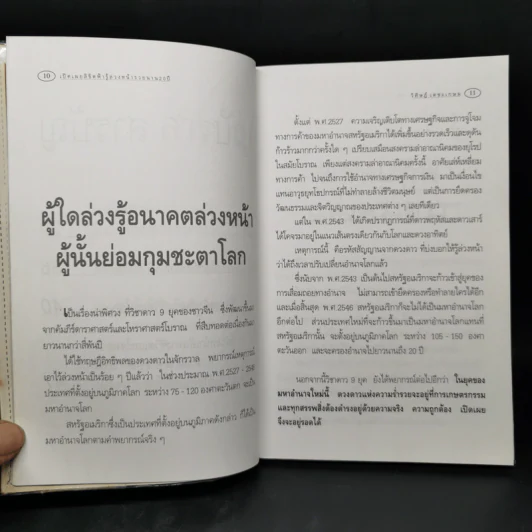 10
เปิดเผยลิขิตฟ้ารู้ล่วงหน้าจากดาว
ผู้ใดล่วงรู้อนาคตล่วงหน้า
ผู้นั้นย่อมกุมชะตาโลก
เป็นเรื่องน่าพิศวง ที่วิชาดาว 9 ยุคของชาวจีน ซึ่งพัฒนาขึ้น
จากคัมภีร์ดาราศาสตร์และโหราศาสตร์โบราณ ที่สืบทอดต่อเนื่องกัน
ยาวนานกว่าสี่พันปี
ได้ใช้ทฤษฎีอิทธิพลของดวงดาวในจักรวาล พยากรณ์เหตุการณ์
เอาไว้ล่วงหน้าเป็นร้อย ๆ ปีแล้วว่า ในช่วงประมาณ พ.ศ.2527 -
ประเทศที่ตั้งอยู่บนภูมิภาคโลก ระหว่าง 75 - 120 องศาตะวันตก จะเป็น
มหาอำนาจโลก
สหรัฐอเมริกาซึ่งเป็นประเทศที่ตั้งอยู่บนภูมิภาคดังกล่าว ก็ได้เป็น
มหาอำนาจโลกตามคำพยากรณ์จริง ๆ
11
ตั้งแต่ พ.ศ.2527 ความเจริญเติบโตทางเศรษฐกิจและการจู่โจม
ทางการค้าของมหาอำนาจสหรัฐอเมริกาได้เพิ่มขึ้นอย่างรวดเร็วและดุดัน
ก้าวร้าวมากกว่าครั้งใด ๆ เปรียบเสมือนสงครามล่าอาณานิคมของยุโรป
ในสมัยโบราณ เพียงแต่สงครามล่าอาณานิคมครั้งนี้ อาศัยเล่ห์เหลี่ยม
ทางการค้า ไปจนถึงการใช้อำนาจทางเศรษฐกิจการเงิน มาเป็นเงื่อนไข
แทนอาวุธยุทโธปกรณ์ที่ไม่ทำลายล้างชีวิตมนุษย์ แต่เป็นการยึดครอง
วัฒนธรรมและจิตวิญญาณของประเทศต่าง ๆ เลยทีเดียว
แต่ใน พ.ศ.2543 ได้เกิดปรากฏการณ์ที่ดาวพฤหัสและดาวเสาร์
ได้โคจรมาอยู่ในแนวเส้นตรงเดียวกันกับโลกและดวงอาทิตย์
เหตุการณ์นี้ คือรหัสสัญญาณจากดวงดาว ที่บ่งบอกให้รู้ล่วงหน้า
ว่าได้ถึงเวลาปรับเปลี่ยนอำนาจโลกแล้ว
ซึ่งนับจาก พ.ศ.2543 เป็นต้นไปสหรัฐอเมริกาจะก้าวเข้าสู่ยุคของ
การเสื่อมถอยทางอำนาจ ไม่สามารถเข้ายึดครองหรือทำลายใครได้อีก
และเมื่อสิ้นสุด พ.ศ.2546 สหรัฐอเมริกาก็จะไม่ได้เป็นมหาอำนาจโลก
อีกต่อไป ส่วนประเทศใหม่ที่จะก้าวขึ้นมาเป็นมหาอำนาจโลกแทนที่
สหรัฐอเมริกานั้น จะตั้งอยู่บนภูมิภาคโลก ระหว่าง 105 - 150 องศา
ตะวันออก และจะครองอำนาจไปยาวนานถึง 20 ปี
นอกจากนี้วิชาดาว 9 ยุค ยังได้พยากรณ์ต่อไปอีกว่า ในยุคของ
มหาอำนาจใหม่นี้ ดวงดาวแห่งความร่ำรวยจะอยู่ที่การเกษตรกรรม
และทุกสรรพสิ่งต้องดำรงอยู่ด้วยความจริง ความถูกต้อง เปิดเผย
จึงจะอยู่รอดได้